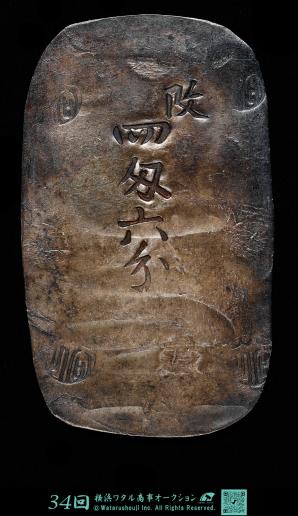 改
四匁六分
34回 横浜ワタル商事オークション
©Watarushouji Inc. All Rights Reserved.